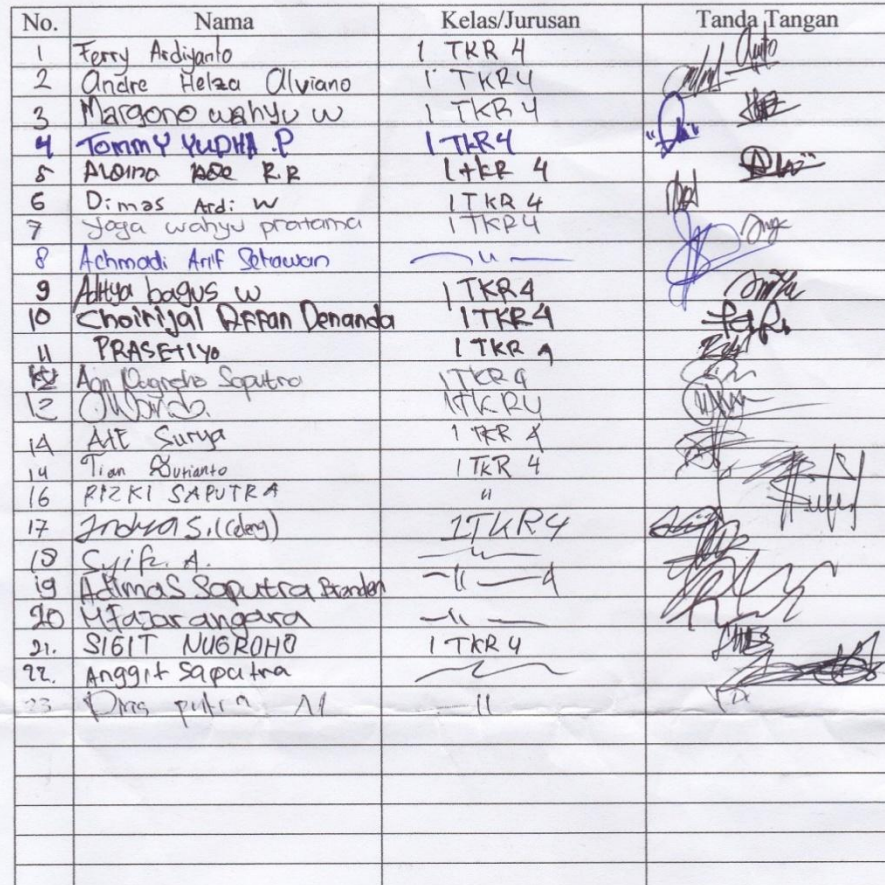 No. Nama Kelas/Jurusan Tanda Tangan
1 Ferry Ardiyanto 1 TKR 4
2 Andre Helza Alviano 1 TKR4
3 Margono wahyu w 1 TKR 4
4 TOMMY YUDHA .P 1 TKR4
5 R.R 1 TKR 4
6 Dimas Ardi W 1 TKR 4
7 Yoga wahyu pratama 1 TKR4
8 Achmadi Arif Setiawan — " —
9 Aditya bagus w 1 TKR4
10 Choirijal Affan Denanda 1 TKR 4
11 PRASETIYO 1 TKR 4
Nugroho Saputro 1 TKR 4
13 1 TKR4
14 Arif Surya 1 TKR 4
14 Tian Surianto 1 TKR 4
16 RIZKI SAPUTRA "
17 Indra S. (Celeng) 1TKR4
18 Syifa. A. — " —
19 Adimas Saputra Branden — " — 4
20 M Fajar angara — " —
21. SIGIT NUGROHO 1 TKR 4
22. Anggit Saputra
23 putra — "